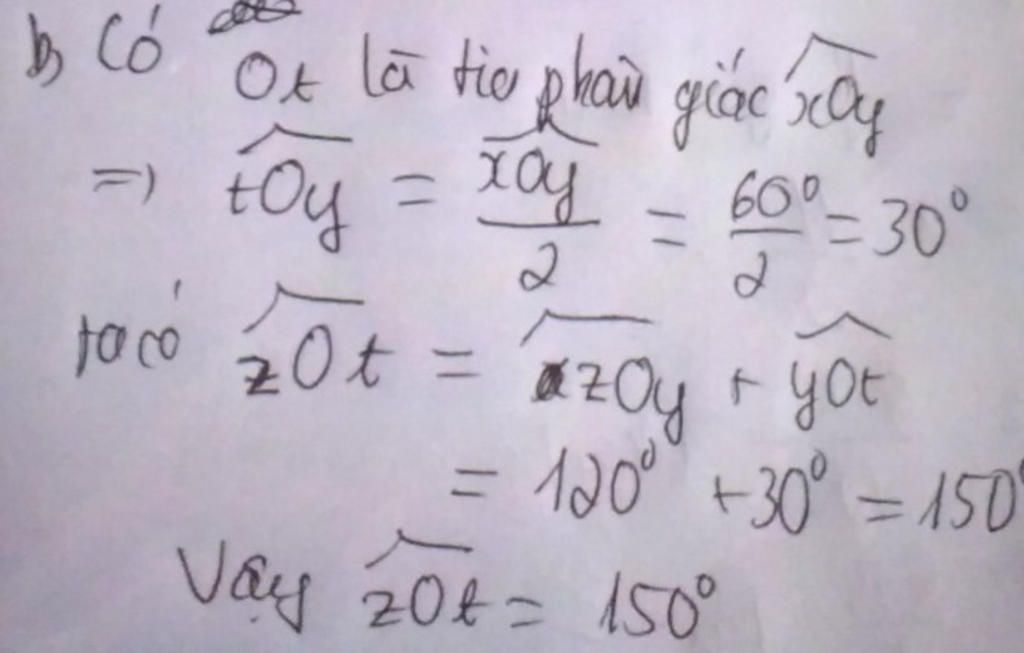 b, Có Ot là tia phân giác $\widehat{xOy}$
=> $\widehat{tOy} = \frac{\widehat{xOy}}{2} = \frac{60^0}{2} = 30^0$
ta có $\widehat{zOt} = \widehat{zOy} + \widehat{yOt}$
$= 120^0 + 30^0 = 150^0$
Vậy $\widehat{zOt} = 150^0$